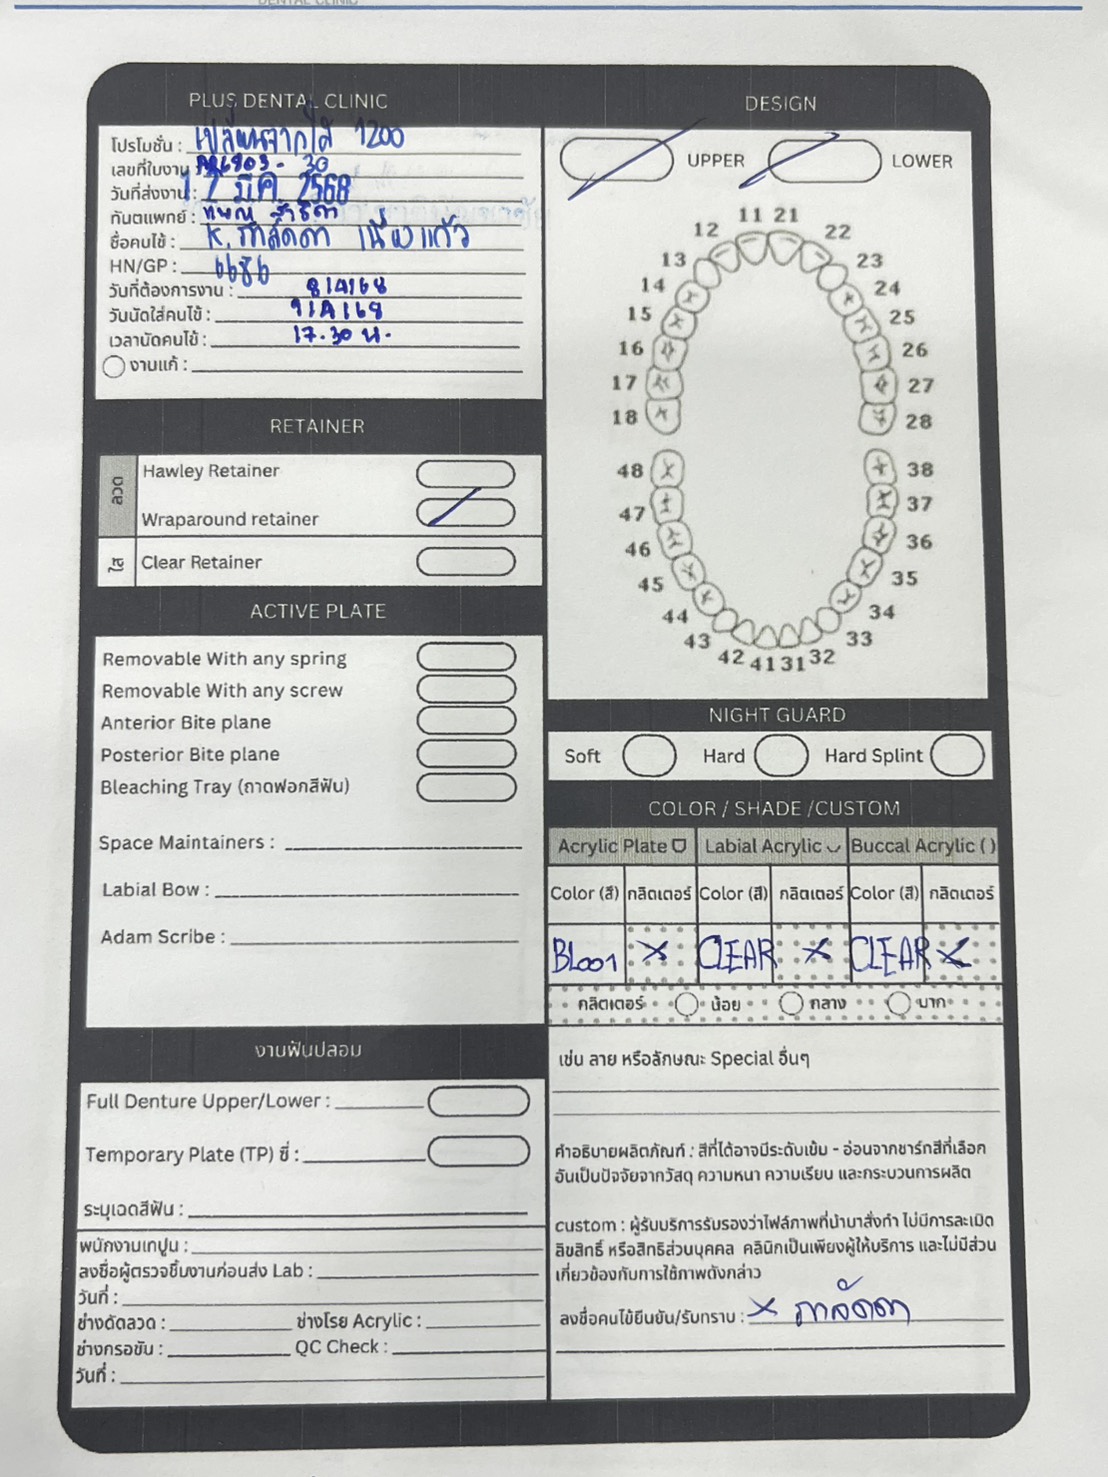 DENTAL CLINIC
PLUS DENTAL CLINIC
โปรโมชั่น : 1200
เลขที่ใบงาน - 30
วันที่ส่งงาน : 17 มีค 2568
ทันตแพทย์ :
ชื่อคนไข้ : K. ภาลัดดา
HN/GP : 6686
วันที่ต้องการงาน : 8/4/68
วันนัดใส่คนไข้ : 9/4/68
เวลานัดคนไข้ : 17.30 น.
งานแก้ :
RETAINER
ลวด
Hawley Retainer
Wraparound retainer
ใส
Clear Retainer
ACTIVE PLATE
Removable With any spring
Removable With any screw
Anterior Bite plane
Posterior Bite plane
Bleaching Tray (ถาดฟอกสีฟัน)
Space Maintainers :
Labial Bow :
Adam Scribe :
งานฟันปลอม
Full Denture Upper/Lower :
Temporary Plate (TP) ซี่ :
ระบุเฉดสีฟัน :
พนักงานเทปูน :
ลงชื่อผู้ตรวจชิ้นงานก่อนส่ง Lab :
วันที่ :
ช่างดัดลวด : ช่างโรย Acrylic :
ช่างกรอขัน : QC Check :
วันที่ :
DESIGN
UPPER LOWER
11 21
12 22
13 23
14 24
15 25
16 26
17 27
18 28
48 38
47 37
46 36
45 35
44 34
43 33
42 41 31 32
NIGHT GUARD
Soft Hard Hard Splint
COLOR / SHADE /CUSTOM
Acrylic Plate Labial Acrylic Buccal Acrylic ( )
Color (สี) กลิตเตอร์ Color (สี) กลิตเตอร์ Color (สี) กลิตเตอร์
BL001 X CLEAR X CLEAR X
กลิตเตอร์ น้อย กลาง มาก
เช่น ลาย หรือลักษณะ Special อื่นๆ
คำอธิบายผลิตภัณฑ์ : สีที่ได้อาจมีระดับเข้ม - อ่อนจากชาร์ทสีที่เลือก
อันเป็นปัจจัยจากวัสดุ ความหนา ความเรียบ และกระบวนการผลิต
custom : ผู้รับบริการรับรองว่าไฟล์ภาพที่นำมาสั่งทำ ไม่มีการละเมิด
ลิขสิทธิ์ หรือสิทธิส่วนบุคคล คลินิกเป็นเพียงผู้ให้บริการ และไม่มีส่วน
เกี่ยวข้องกับการใช้ภาพดังกล่าว
ลงชื่อคนไข้ยืนยัน/รับทราบ : X ภาลัดดา